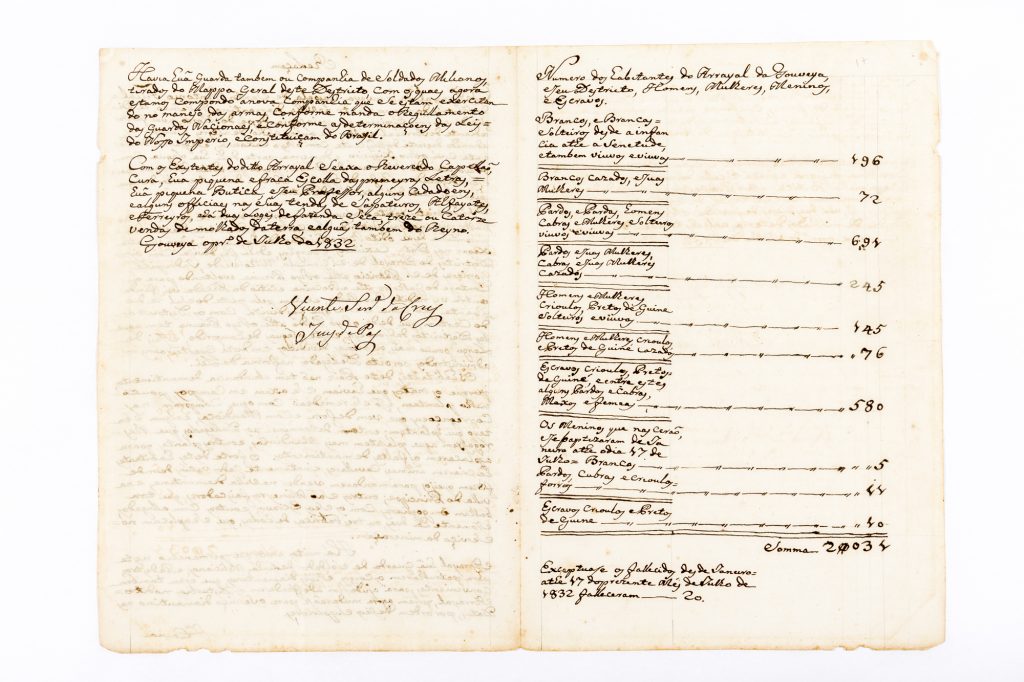 Havia huã Guarda tambem ou Companhia de Soldados Melicianos,
tirados do Mappa Geral deste Destricto com os quaes agora
estamos Compondo a nova Companhia que se estam exercitan
do no manejo das armas, Conforme manda o Regulamento
das Guardas Nacionaes, e Conforme as determinaçoens das Leis=
do Nosso Imperio, e Constituiçam do Brasil.
Com os Existentes do ditto Arrayal se axa o Reverendo Capellaõ
Cura, huã piquena e fraca Escolla das premeyras Letras,
huã piquena Butica, e seu Professor, alguns
e alguns officiaes nas suas tendas, de Sapateiros, Alfayates,
e Ferreyros, duas Loges de fazenda Seca, treze ou Catorze
vendas de molhados da terra, e alguã tambem do Reyno.
Gouveya o pr.º de Julho de 1832
Vicente Ferr.ª da Cruz
Juiz de Paz
Numero dos Habetantes do Arrayal da Gouveya,
e seu Destricto, Homens, Mulheres, Meninos,
e Escravos.
Brancos, e Brancas=
Solteiros desde a infan
cia athe a Senetude,
e tambem viuvos e viuvas — 196
Brancos Cazados, e suas
Mulheres — 72
Pardos, e Pardas, homens
Cabras e Mulheres, Solteiros
viuvos e viuvas — 691
Pardos e suas Mulheres,
Cabras e suas Mulheres
Cazados — 245
Homens e Mulheres
Crioulos, Pretos de Guine
Solteiros e viuvos — 145
Homens e Mulheres, Crioulos
e Pretos de Guine Cazados — 76
Escravos Crioulos, Pretos,
de Guine, e entre estes,
alguns Pardos e Cabras,
Maxos e femeas — 580
Os Meninos que nasceraõ,
e se baptizaram de Ja
neiro athe o dia 17 de
Julho= Brancos — 5
Pardos, Cabras e Crioulos=
forros — 11
Escravos Crioulos e Pretos
de Guine — 10
Somma — 2031
Exceptuase os fallecidos desde Janeiro=
athe 17 do prezente Mês de Julho de
1832 falleceram — 20.